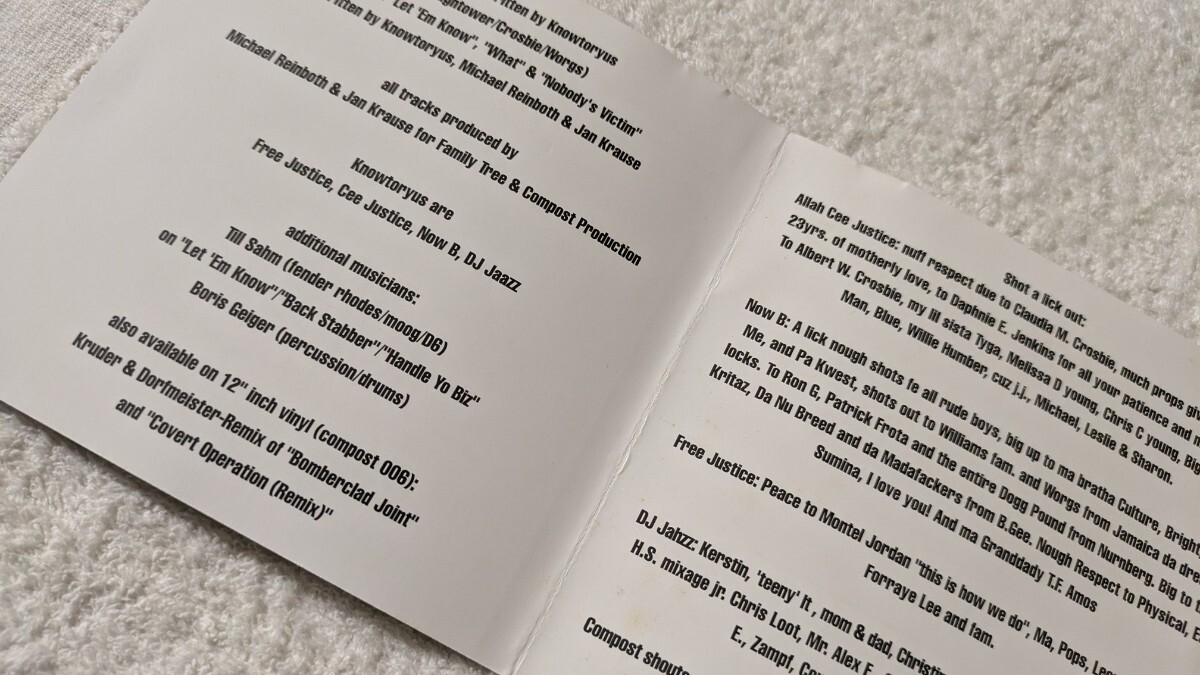 ritten by Knowtoryus
ghtower/Crosbie/Worgs)
"Let 'Em Know", "What" & "Nobody's Victim"
itten by Knowtoryus, Michael Reinboth & Jan Krause
all tracks produced by
Michael Reinboth & Jan Krause for Family Tree & Compost Production
Knowtoryus are
Free Justice, Cee Justice, Now B, DJ Jaazz
additional musicians:
Till Sahm (fender rhodes/moog/D6)
on "Let 'Em Know"/"Back Stabber"/"Handle Yo Biz"
Boris Geiger (percussion/drums)
also available on 12" inch vinyl (compost 006):
Kruder & Dorfmeister-Remix of "Bomberclad Joint"
and "Covert Operation (Remix)"
Shot a lick out:
Allah Cee Justice: nuff respect due to Claudia M. Crosbie, much props giv
23yrs. of motherly love, to Daphnie E. Jenkins for all your patience and m
To Albert W. Crosbie, my lil sista Tyga, Melissa D young, Chris C young, Big
Man, Blue, Willie Humber, cuz j.j., Michael, Leslie & Sharon.
Now B: A lick nough shots fe all rude boys, big up to ma bratha Culture, Bright
Me, and Pa Kwest, shots out to Williams fam. and Worgs from Jamaica da dre
locks. To Ron G, Patrick Frota and the entire Dogg Pound from Nurnberg. Big to t
Kritaz, Da Nu Breed and da Madafackers from B.Gee. Nough Respect to Physical, E.
Sumina, I love you! And ma Granddady T.F. Amos
Free Justice: Peace to Montel Jordan "this is how we do", Ma, Pops, Les
Forraye Lee and fam.
DJ Jahzz: Kerstin, 'teeny' It, mom & dad, Christin
H.S. mixage jr. Chris Loot, Mr. Alex F
E., Zampf, Co
Compost shouts